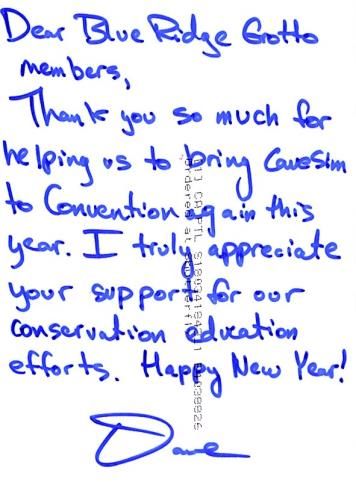 Dear Blue Ridge Grotto
members,
Thank you so much for
helping us to bring CaveSim
to Convention again this
year. I truly appreciate
your support for our
conservation education
efforts. Happy New Year!
Dave